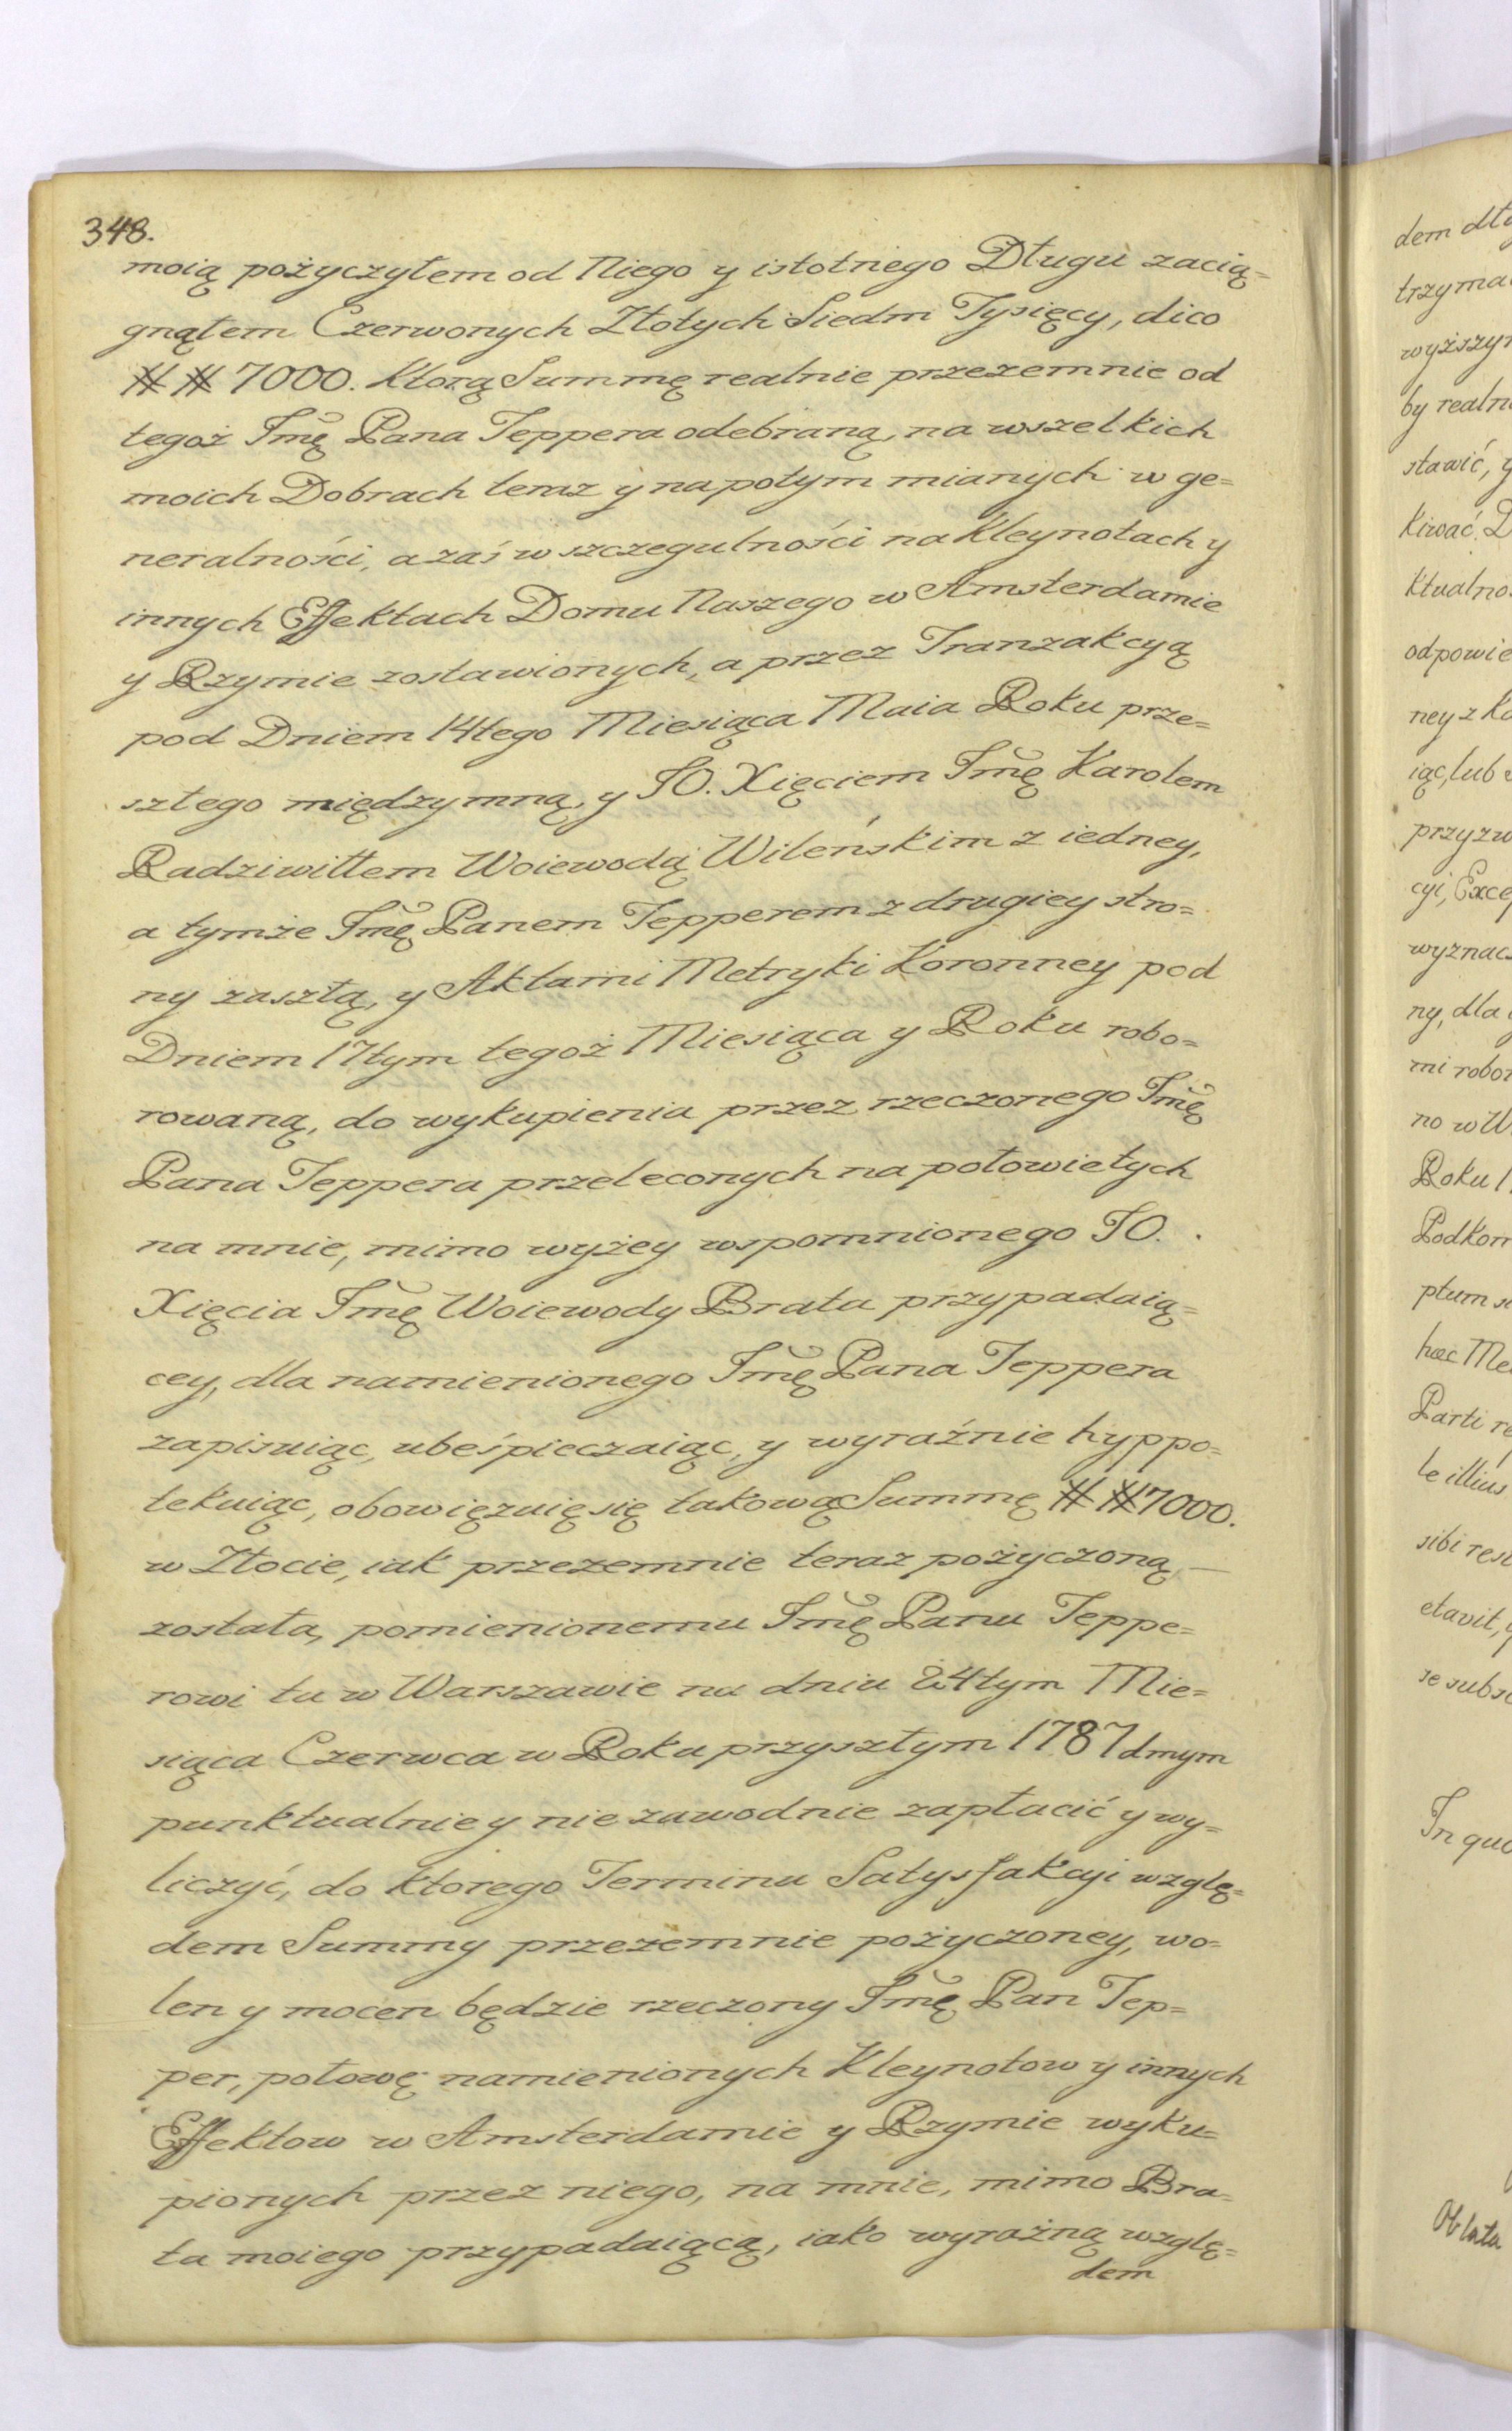 348.
moią pożyczyłem od Niego y istotnego Długu zacią=
gnąłem Czerwonych Złotych Siedm Tysięcy, dico
## 7000. Ktorą Summę realnie przezemnie od
tegoż Jmę Pana Teppera odebraną, na wszelkich
moich Dobrach teraz y napotym mianych w ge=
neralności, a zaś w szczegulności na Kleynotach y
innych Effektach Domu Naszego w Amsterdamie
y Rzymie zostawionych, a przez Tranzakcyą
pod Dniem 14tego Miesiąca Maia Roku prze=
szłego między mną, y JO. Xięciem Jmę Karolem
Radziwiłłem Woiewodą Wileńskim z iedney,
a tymże Jmę Panem Tepperem z drugiey stro=
ny zaszłą, y Aktami Metryki Koronney pod
Dniem 17tym tegoż Miesiąca y Roku robo=
rowaną, do wykupienia przez rzeczonego Jmę
Pana Teppera przeleconych na połowie tych
na mnie, mimo wyżey wspomnionego JO.
Xięcia Jmę Woiewody Brata przypadaią=
cey, dla namienionego Jmę Pana Teppera
zapisuiąc, ubeśpieczaiąc, y wyraźnie hyppo=
tekuiąc, obowięzuię się takową Summę ## 7000.
w Złocie, iak przezemnie teraz pożyczoną
została, pomienionemu Jmę Panu Teppe=
rowi tu w Warszawie na dniu 24tym Mie=
siąca Czerwca w Roku przyszłym 1787dmym
punktualnie y nie zawodnie zapłacić y wy=
liczyć, do ktorego Terminu Satysfakcyi wzglę=
dem Summy przezemnie pożyczoney, wo=
len y mocen będzie rzeczony Jmę Pan Tep=
per, połowę namienionych Kleynotow y innych
Effektow w Amsterdamie y Rzymie wyku=
pionych przez niego, na mnie, mimo Bra=
ta moiego przypadaiącą, iako wyraźną wzglę=
dem
dem
trzyma
by realn
stawić, y
Kiwać. D
ktualno
odpowie
ney z Ko
iąc, lub
przyzw
cyi, Exce
wyznac
ny, dla
mi robor
no w W
Roku 1
Podkom
ptum
hæc Me
Parti re
le illius
sibi res
etavit,
se subs
In quo
Oblata